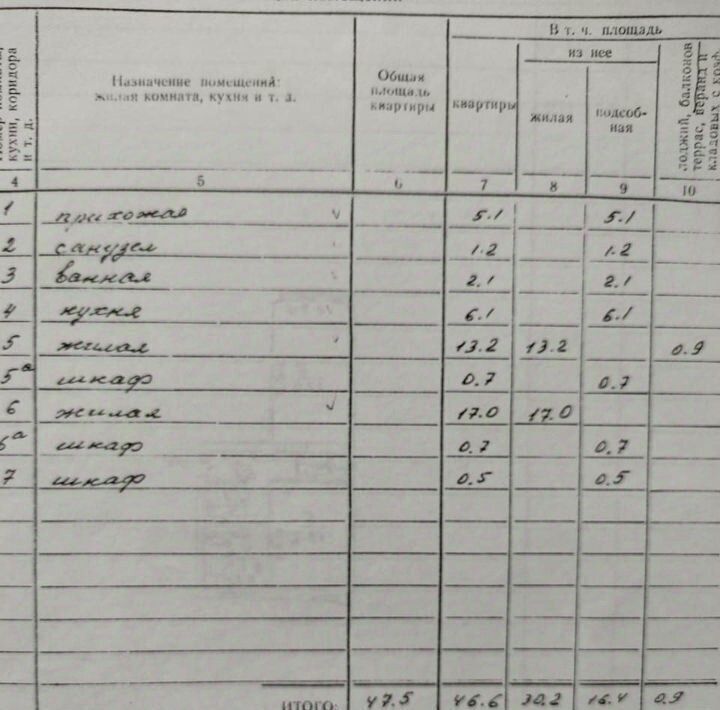 В т. ч. площадь
из нее
кухни, коридора
и т. д.
Назначение помещений:
жилая комната, кухня и т. д.
Общая
площадь
квартиры
квартиры
жилая
подсоб-
ная
лоджий, балконов
террас, веранд и
кладовых с коэф.
4 5 6 7 8 9 10
1 прихожая 5.1 5.1
2 санузел 1.2 1.2
3 ванная 2.1 2.1
4 кухня 6.1 6.1
5 жилая 13.2 13.2 0.9
5а шкаф 0.7 0.7
6 жилая 17.0 17.0
6а шкаф 0.7 0.7
7 шкаф 0.5 0.5
ИТОГО: 47.5 46.6 30.2 16.4 0.9